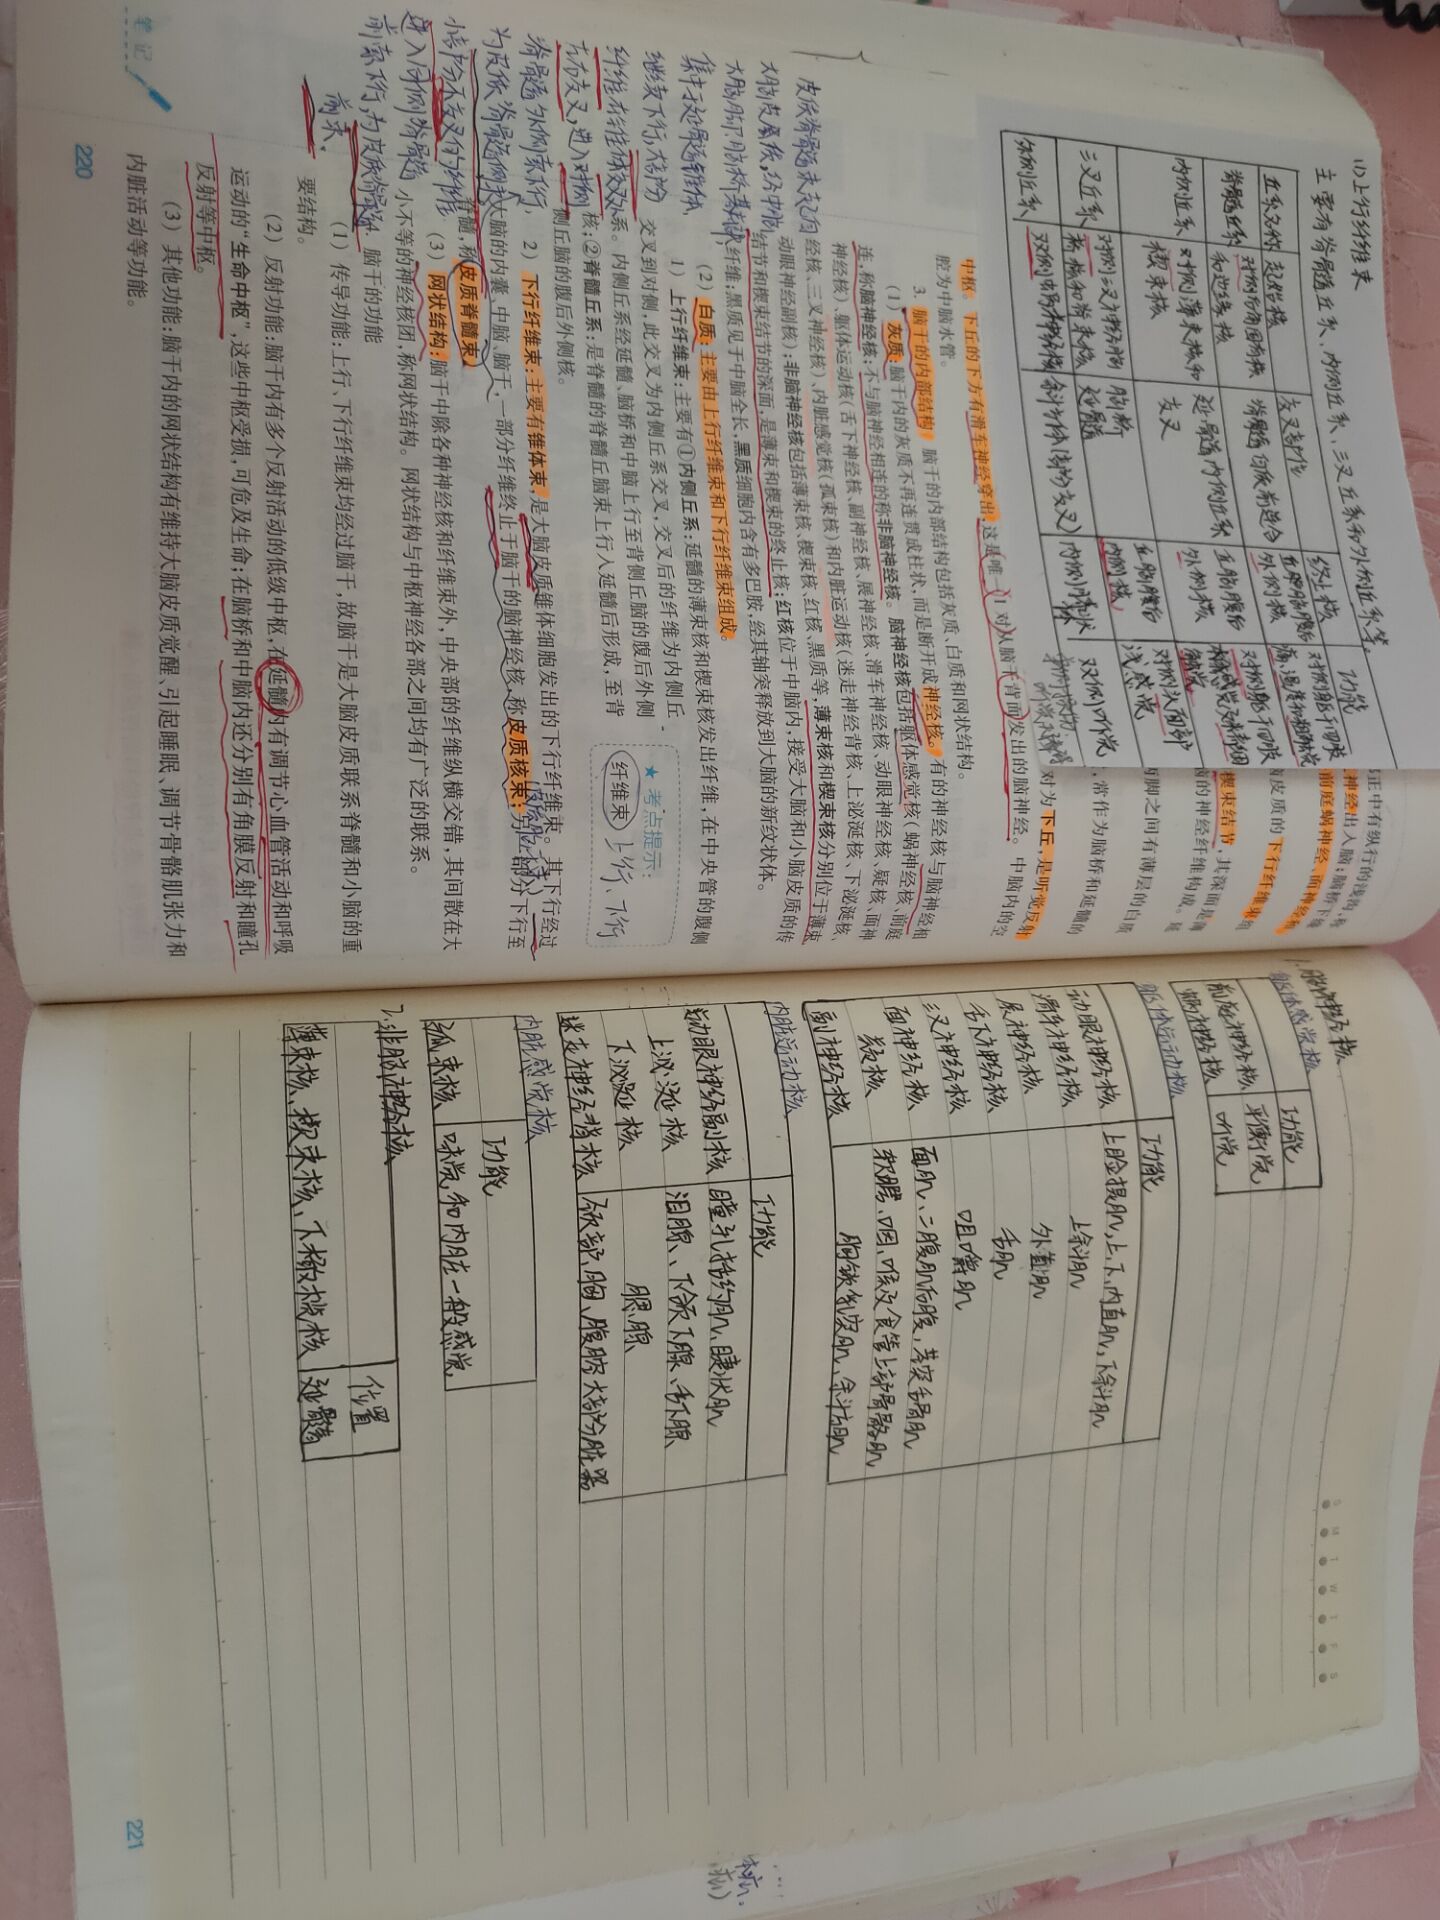 (1)上行纤维束
主要有脊髓丘系、内侧丘系、三叉丘系和外侧丘系等。
丘系名称 起始核 交叉部位 终止核 功能
脊髓丘系 对侧后角固有核和胶状核 脊髓白质前连合 丘脑腹后外侧核 对侧躯干四肢痛、温度和粗触觉
内侧丘系 对侧薄束核和楔束核 延髓内侧丘系交叉 丘脑腹后外侧核 对侧躯干四肢
三叉丘系 对侧三叉神经脑桥核和脊束核 脑桥 延髓 丘脑腹后内侧核 对侧头面部浅感觉
外侧丘系 双侧蜗神经核 斜方体(部分交叉) 内侧膝状体 双侧听觉
正中有纵行的浅沟，
神经出入脑；脑桥下
前庭蜗神经、面神经
脑皮质的下行纤维
楔束结节，其深面是
的神经纤维构成。
两脚之间有薄层的白质
，常作为脑桥和延髓的
对为下丘，是听觉反射
中枢。下丘的下方有滑车神经穿出，这是唯一1对从脑干背面发出的脑神经。中脑内的空
腔为中脑水管。
3. 脑干的内部结构 脑干的内部结构包括灰质、白质和网状结构。
（1）灰质：脑干内的灰质不再连贯成柱状，而是断开成神经核。有的神经核与脑神经相
连，称脑神经核；不与脑神经相连的称非脑神经核。脑神经核包括躯体感觉核（蜗神经核、前庭
神经核）、躯体运动核（舌下神经核、副神经核、展神经核、滑车神经核、动眼神经核、疑核、面神
经核、三叉神经核）、内脏感觉核（孤束核）和内脏运动核（迷走神经背核、上泌涎核、下泌涎核、
动眼神经副核）；非脑神经核包括薄束核、楔束核、红核、黑质等，薄束核和楔束核分别位于薄束
结节和楔束结节的深面，是薄束和楔束的终止核；红核位于中脑内，接受大脑和小脑皮质的传
入纤维；黑质见于中脑全长，黑质细胞内含有多巴胺，经其轴突释放到大脑的新纹状体。
（2）白质：主要由上行纤维束和下行纤维束组成。
1）上行纤维束：主要有①内侧丘系：延髓的薄束核和楔束核发出纤维，在中央管的腹侧
交叉到对侧，此交叉为内侧丘系交叉，交叉后的纤维为内侧丘
系。内侧丘系经延髓、脑桥和中脑上行至背侧丘脑的腹后外侧
核；②脊髓丘系：是脊髓的脊髓丘脑束上行入延髓后形成，至背
侧丘脑的腹后外侧核。
★ 考点提示：
纤维束 上行、下行
2）下行纤维束：主要有锥体束，是大脑皮质锥体细胞发出的下行纤维束。其下行经过
大脑的内囊、中脑、脑干，一部分纤维终止于脑干的脑神经核，称皮质核束；另一部分下行至
脊髓，称皮质脊髓束。
（3）网状结构：脑干中除各种神经核和纤维束外，中央部的纤维纵横交错，其间散在大
小不等的神经核团，称网状结构。网状结构与中枢神经各部之间均有广泛的联系。
4. 脑干的功能
（1）传导功能：上行、下行纤维束均经过脑干，故脑干是大脑皮质联系脊髓和小脑的重
要结构。
（2）反射功能：脑干内有多个反射活动的低级中枢，在延髓内有调节心血管活动和呼吸
运动的“生命中枢”，这些中枢受损，可危及生命；在脑桥和中脑内还分别有角膜反射和瞳孔
反射等中枢。
（3）其他功能：脑干内的网状结构有维持大脑皮质觉醒、引起睡眠、调节骨骼肌张力和
内脏活动等功能。
皮质脊髓束起自
大脑皮质
大脑脚、脑桥基底
集中于延髓锥体，
继续下行，大部分
纤维在锥体交叉处
左右交叉，进入对侧
脊髓外侧索下行，
为皮质脊髓侧束
小部分不交叉的纤维
进入同侧脊髓
前索下行，为皮质脊髓
前束。
笔记
220
1.脑神经核
躯体感觉核 功能
前庭神经核 平衡觉
蜗神经核 听觉
躯体运动核 功能
动眼神经核 上睑提肌，上、下、内直肌，下斜肌
滑车神经核 上斜肌
展神经核 外直肌
舌下神经核 舌肌
三叉神经核 咀嚼肌
面神经核 面肌、二腹肌后腹，茎突舌骨肌
疑核 软腭、咽、喉及食管上部骨骼肌
副神经核 胸锁乳突肌、斜方肌
内脏运动核 功能
动眼神经副核 瞳孔括约肌、睫状肌
上泌涎核 泪腺、下颌下腺、舌下腺
下泌涎核 腮腺
迷走神经背核 颈部、胸、腹腔大部分脏器
内脏感觉核 功能
孤束核 味觉和内脏一般感觉
2.非脑神经核 位置
薄束核、楔束核、下橄榄核 延髓
S M T W T F S
221